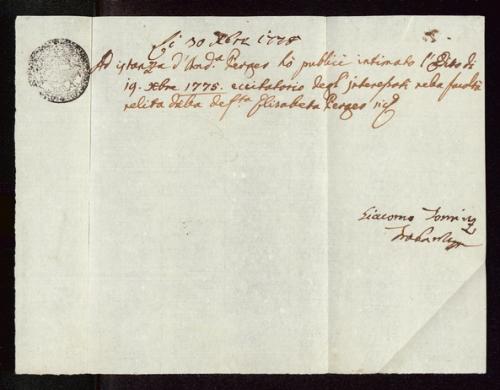 Li 30 Xbre 1778
Ad istanza d'And.a Perges hò publice intimato l'Edito di
19. Xbre 1778. eccitatorio degl' interessati nella facoltà
relita dalla def.ta Elisabeta Perges
Giacomo